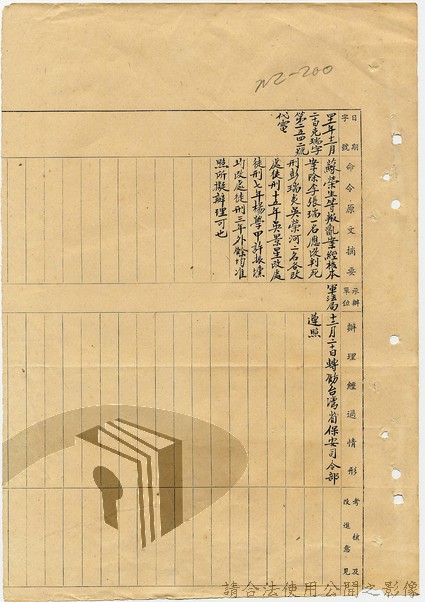 nz-200
日期
字號
命令原文摘要
承辦
單位
辦理經過情形
考核及
改進意見
年十二月
二十日
字
代電
蘇榮生等叛亂案經核本
案除李張瑞一名應改判死
刑彭瑞 吳榮河二名各改
處徒刑十五年吳景星改處
徒刑七年楊學甲許振
均改處徒刑三年外餘均准
照所擬辦理可也
軍法局
十二月二十日轉飭台灣省保安司令部
遵照
請合法使用公開之影像